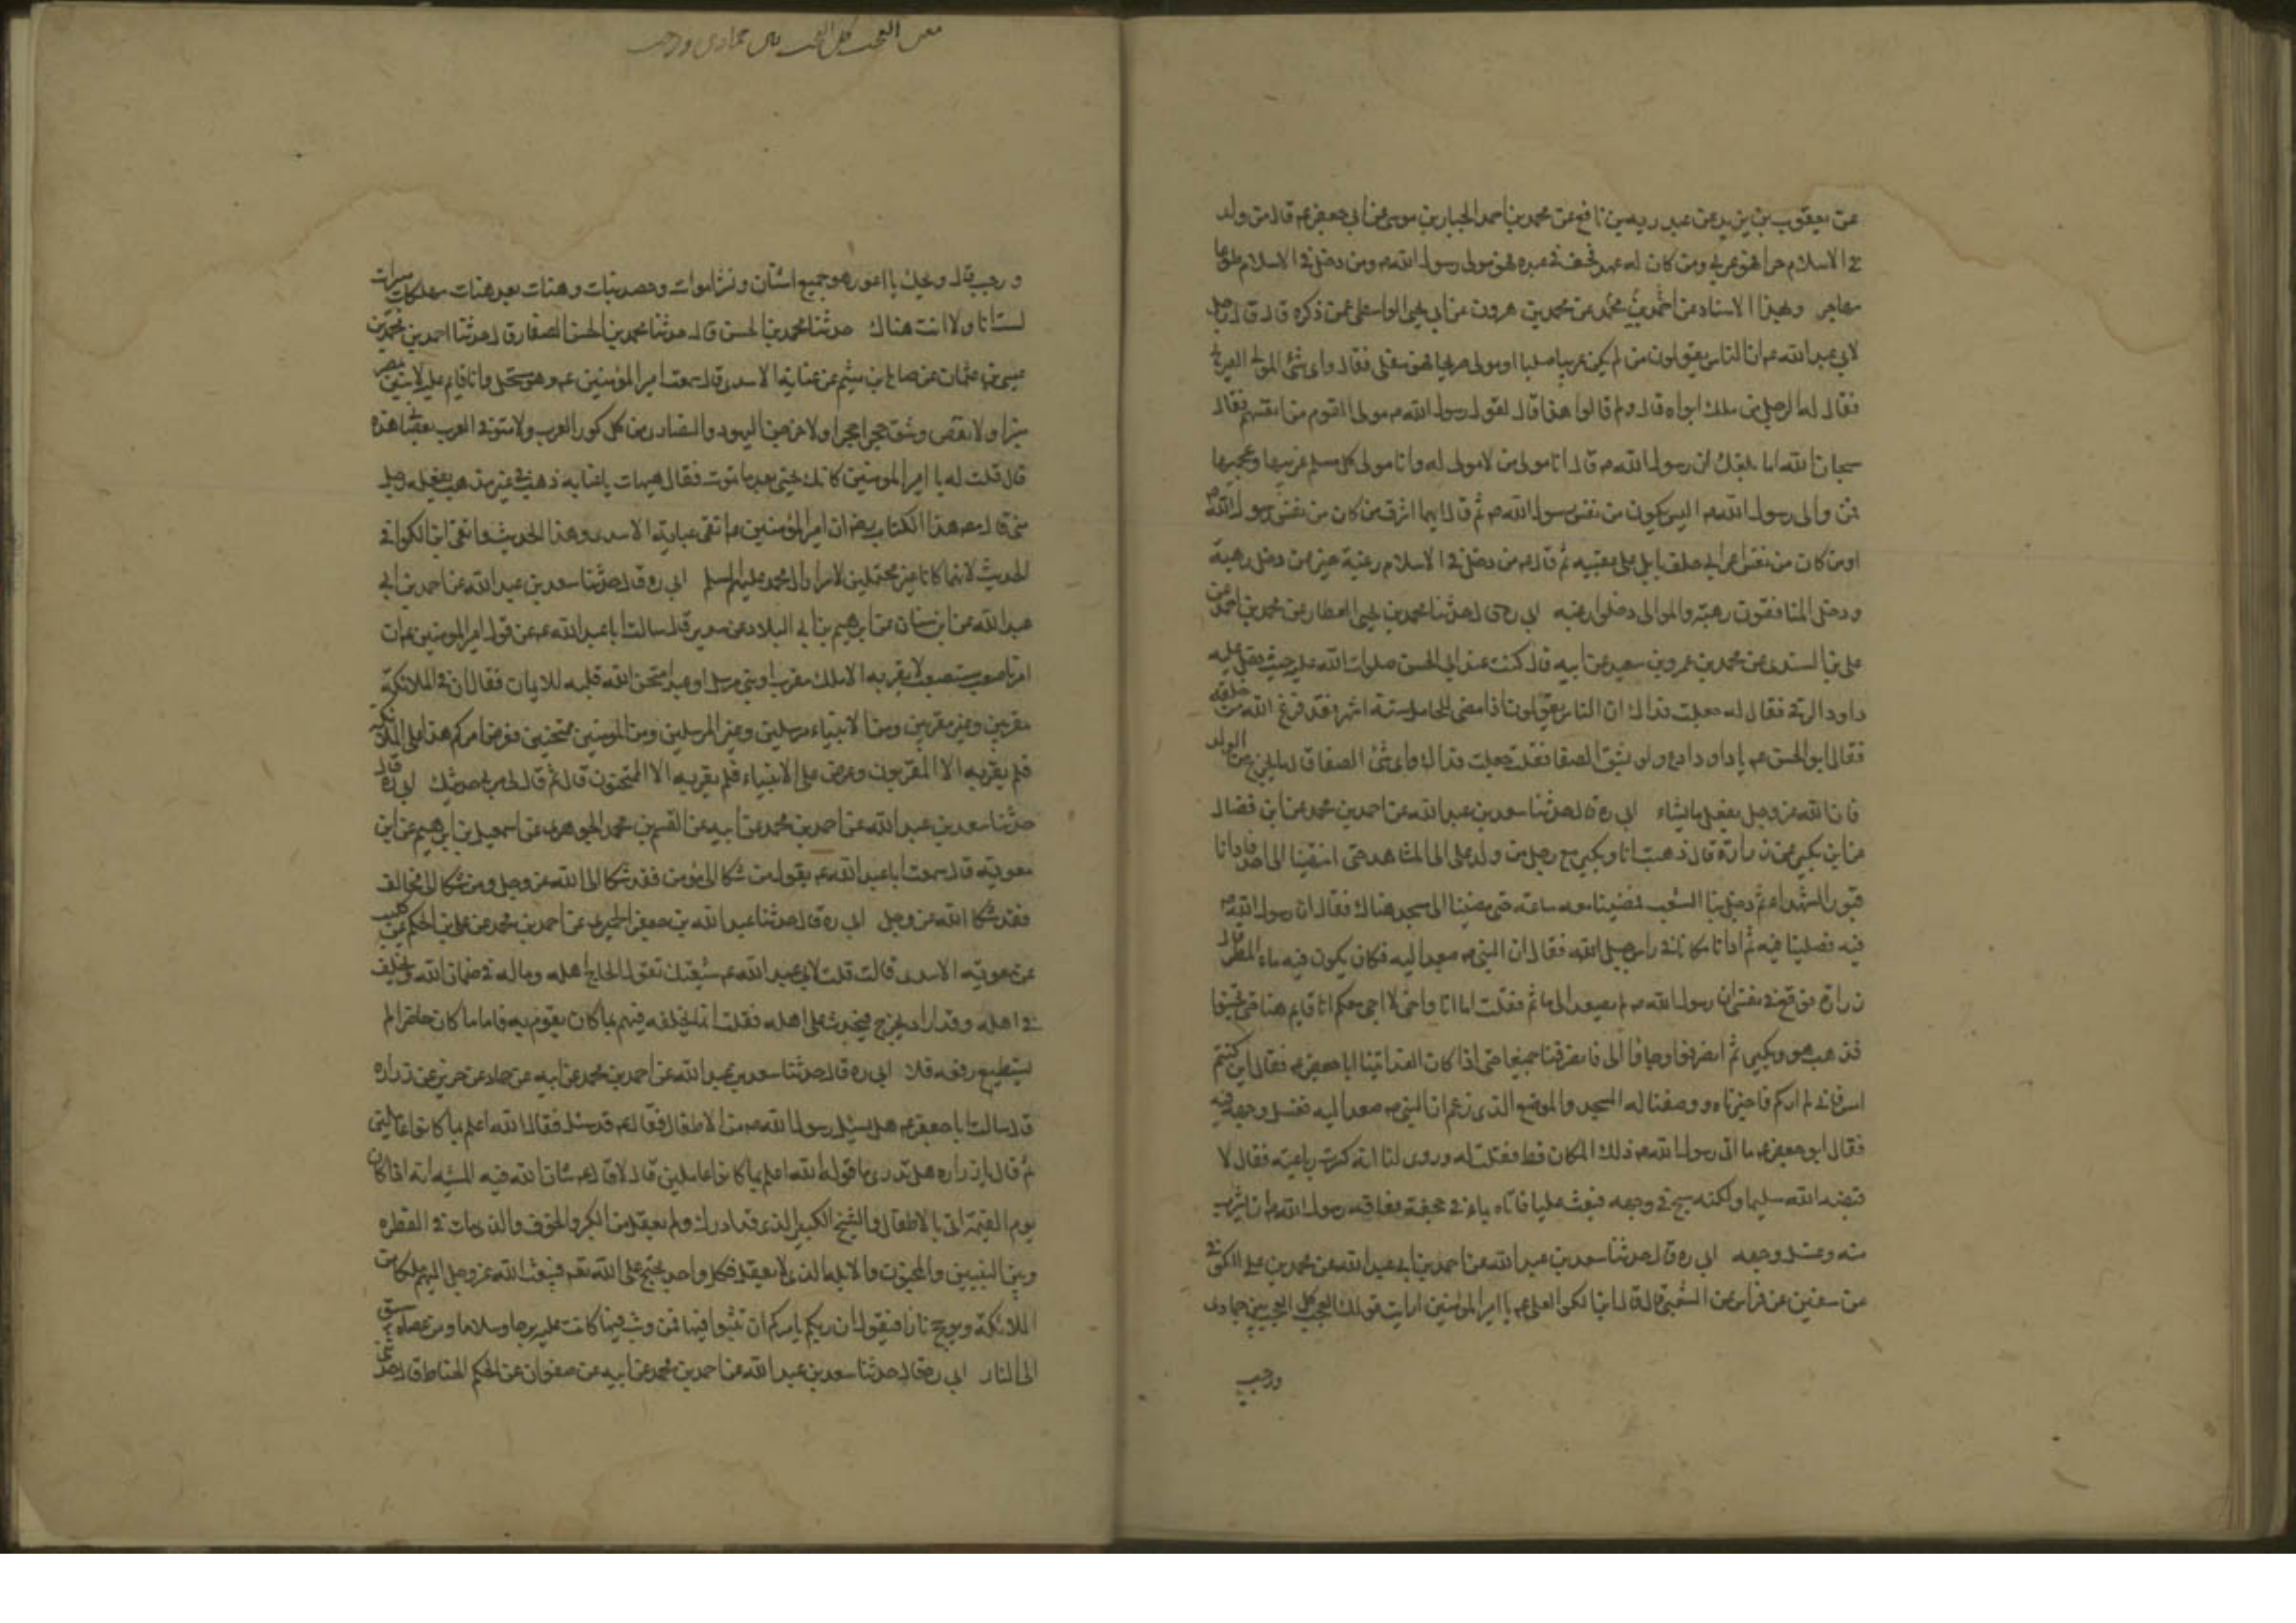 عن يعقوب بن يزيد عن عبد ربه بن نافع عن محمد بن احمد الجبار بن موسى عن ابي جعفر عم قال من ولد
في الاسلام حرا فهو عربي ومن كان له عهد فخفر في عهده فهو مولى رسول الله ص ومن دخل في الاسلام طوعا
مهاجر وبهذا الاسناد عن احمد بن محمد عن محمد بن هرون عن ابي يحيى الواسطي عمن ذكره قال قال رجل
لابي عبد الله عم ان الناس يقولون من لم يكن عربيا صلبا او مولى صريحا فهو سفلى فقال واي شئ المولى الصريح
فقال له الرجل من ملك ابواه قال ولم قالوا هذا قال لقول رسول الله ص مولى القوم من انفسهم فقال
سبحان الله اما بلغك ان رسول الله ص قال انا مولى من لا مولى له وانا مولى كل مسلم عربيها وعجميها
فمن والى رسول الله ص اليس يكون من نفس رسول الله ص ثم قال ايهما اشرف من كان من نفس رسول الله ص
او من كان من نفس اعرابي جلف بايل على عقبيه ثم قال ص من دخل في الاسلام رغبة خير ممن دخل رهبة
ودخل المنافقون رهبة والموالي دخلوا رغبة ابي ره قال حدثنا محمد بن يحيى العطار عن محمد بن احمد عن
علي بن السندي عن محمد بن عمرو بن سعيد عن ابيه قال كنت عند ابي الحسن صلوات الله عليه حيث دخل عليه
داود الرقي فقال له جعلت فداك ان الناس يقولون اذا مضى للحامل ستة اشهر فقد فرغ الله من خلقه
فقال ابو الحسن عم يا داود ادع ولو بشق الصفا فقلت جعلت فداك واي شئ الصفا قال ما يخرج مع الولد
فان الله عز وجل يفعل ما يشاء ابي ره قال حدثنا سعد بن عبد الله عن احمد بن محمد عن ابن فضال
عن ابن بكير عن زرارة قال ذهبت انا وبكير مع رجل من ولد علي الى المشاهد حتى انتهينا الى احد فارانا
قبور الشهداء ثم دخل بنا الشعب فمضينا معه ساعة حتى مضينا الى مسجد هناك فقال ان رسول الله ص
فيه فصلينا فيه ثم ارانا مكانا في راس جبل الله فقال ان النبي ص صعد اليه فكان يكون فيه ماء المطر قال
زرارة فوقع في نفسي ان رسول الله ص لم يصعد الى ما ثم فقلت اما انا واني لا اجي معكم انا قايم هنا حتى تجيئوا
فذهب هو وبكير ثم انصرفوا وجاؤا الي فانصرفنا جميعا حتى اذا كان الغد اتينا ابا جعفر عم فقال اين كنتم
امس فاني لم اركم فاخبرناه ووصفنا له المسجد والموضع الذي زعم ان النبي ص صعد اليه فغسل وجهه فيه
فقال ابو جعفر عم ما اتى رسول الله ص ذلك المكان قط فقلت له وروى لنا انه كسرت رباعيته فقال لا
قبضه الله سليما ولكنه شج في وجهه فبعث عليا فاتاه بماء في حجفة فعافه رسول الله ص ان يشرب
منه وغسل وجهه ابي ره قال حدثنا سعد بن عبد الله عن احمد بن ابي عبد الله عن محمد بن علي الكوفي
عن سفين عن فراس عن الشعبي قال قال ابن الكوا لعلي عم يا امير المؤمنين ارايت قولك العجب كل العجب بين جمادى
ورجب
ورجب قال ويحك يا اعور هو جميع اشتات ونشر اموات وحصد نبات وهنات بعد هنات مهلكات مبيرات
لست انا ولا انت هناك حدثنا محمد بن الحسن قال حدثنا محمد بن الحسن الصفار قال حدثنا احمد بن محمد بن
عيسى عن عثمان عن صالح بن ميثم عن عباية الاسدي قال سمعت امير المؤمنين عم وهو مستحل وانا قايم عليه لابنين بمصر
منبرا ولانقض دمشق حجرا حجرا ولاخرجن اليهود والنصارى من كل كور العرب ولاسوقن العرب بعصاي هذه
قال قلت له يا امير المؤمنين كانك تحيى بعد ما تموت فقال هيهات يا عباية ذهبت في غير مذهب يفعله رجل
مني قال مصـ هذا الكتاب رضه ان امير المؤمنين عم اتقى عباية الاسدي وهذا الحديث واتقى ابن الكوا في
الحديث لانهما كانا غير محتملين لاسرار ال محمد عليهم السلم ابي ره قال حدثنا سعد بن عبد الله عن احمد بن ابي
عبد الله عن ابن سنان عن ابرهيم بن ابي البلاد عن سدير قال سالت ابا عبد الله عم عن قول امير المومنين عم ان
امرنا صعب مستصعب لا يقر به الا ملك مقرب او نبي مرسل او عبد امتحن الله قلبه للايمان فقال ان في الملائكة
مقربين وغير مقربين ومن الانبياء مرسلين وغير المرسلين ومن المومنين ممتحنين فعرض امركم هذا على الملائكة
فلم يقر به الا المقربون وعرض على الانبياء فلم يقر به الا الممتحنون قال ثم قال لي مر في حديثك ابي ره قال
حدثنا سعد بن عبد الله عن احمد بن محمد عن ابيه عن القسم بن محمد الجوهري عن اسمعيل بن ابرهيم عن ابن
معوية قال سمعت ابا عبد الله عم يقول من شكا الى مؤمن فقد شكا الى الله عز وجل ومن شكا الى مخالف
فقد شكا الله عز وجل ابي ره قال حدثنا عبد الله بن جعفر الحميري عن احمد بن محمد عن علي بن الحكم عن كليب
عن معوية الاسدي قالت قلت لابي عبد الله عم شيعتك تقول الحاج اهله وماله في ضمان الله ويخلف
في اهله وقد اراه يخرج فيحدث على اهله فقلت انما يخلفه فيهم بما كان يقوم به فاما ما كان حاضرا لم
يستطيع رفعه فلا ابي ره قال حدثنا سعد بن عبد الله عن احمد بن محمد عن ابيه عن حماد عن حريز عن زراره
قال سالت ابا جعفر عم هل سئل رسول الله ص عن الاطفال فقال عم قد سئل فقال الله اعلم بما كانوا عاملين
ثم قال يا زراره هل تدري ما قوله الله اعلم بما كانوا عاملين قال لا قال عم لله فيه المشيه انه اذا كان
يوم القيمة اتي بالاطفال والشيخ الكبير الذي قد ادرك ولم يعقل من الكبر والخرف والذي مات في الفطرة
وبين النبيين والمجنون والابله الذي لا يعقل فكل واحد يحتج على الله تعـ فيبعث الله عز وجل اليهم ملكا من
الملائكة ويوجج نارا فيقول ان ربكم يامركم ان تثبوا فيها فمن وثب فيها كانت عليه بردا وسلاما ومن عصاه سيق
الى النار ابي ره قال حدثنا سعد بن عبد الله عن احمد بن محمد عن ابيه عن صفوان عن الحكم الحناط قال حدثني